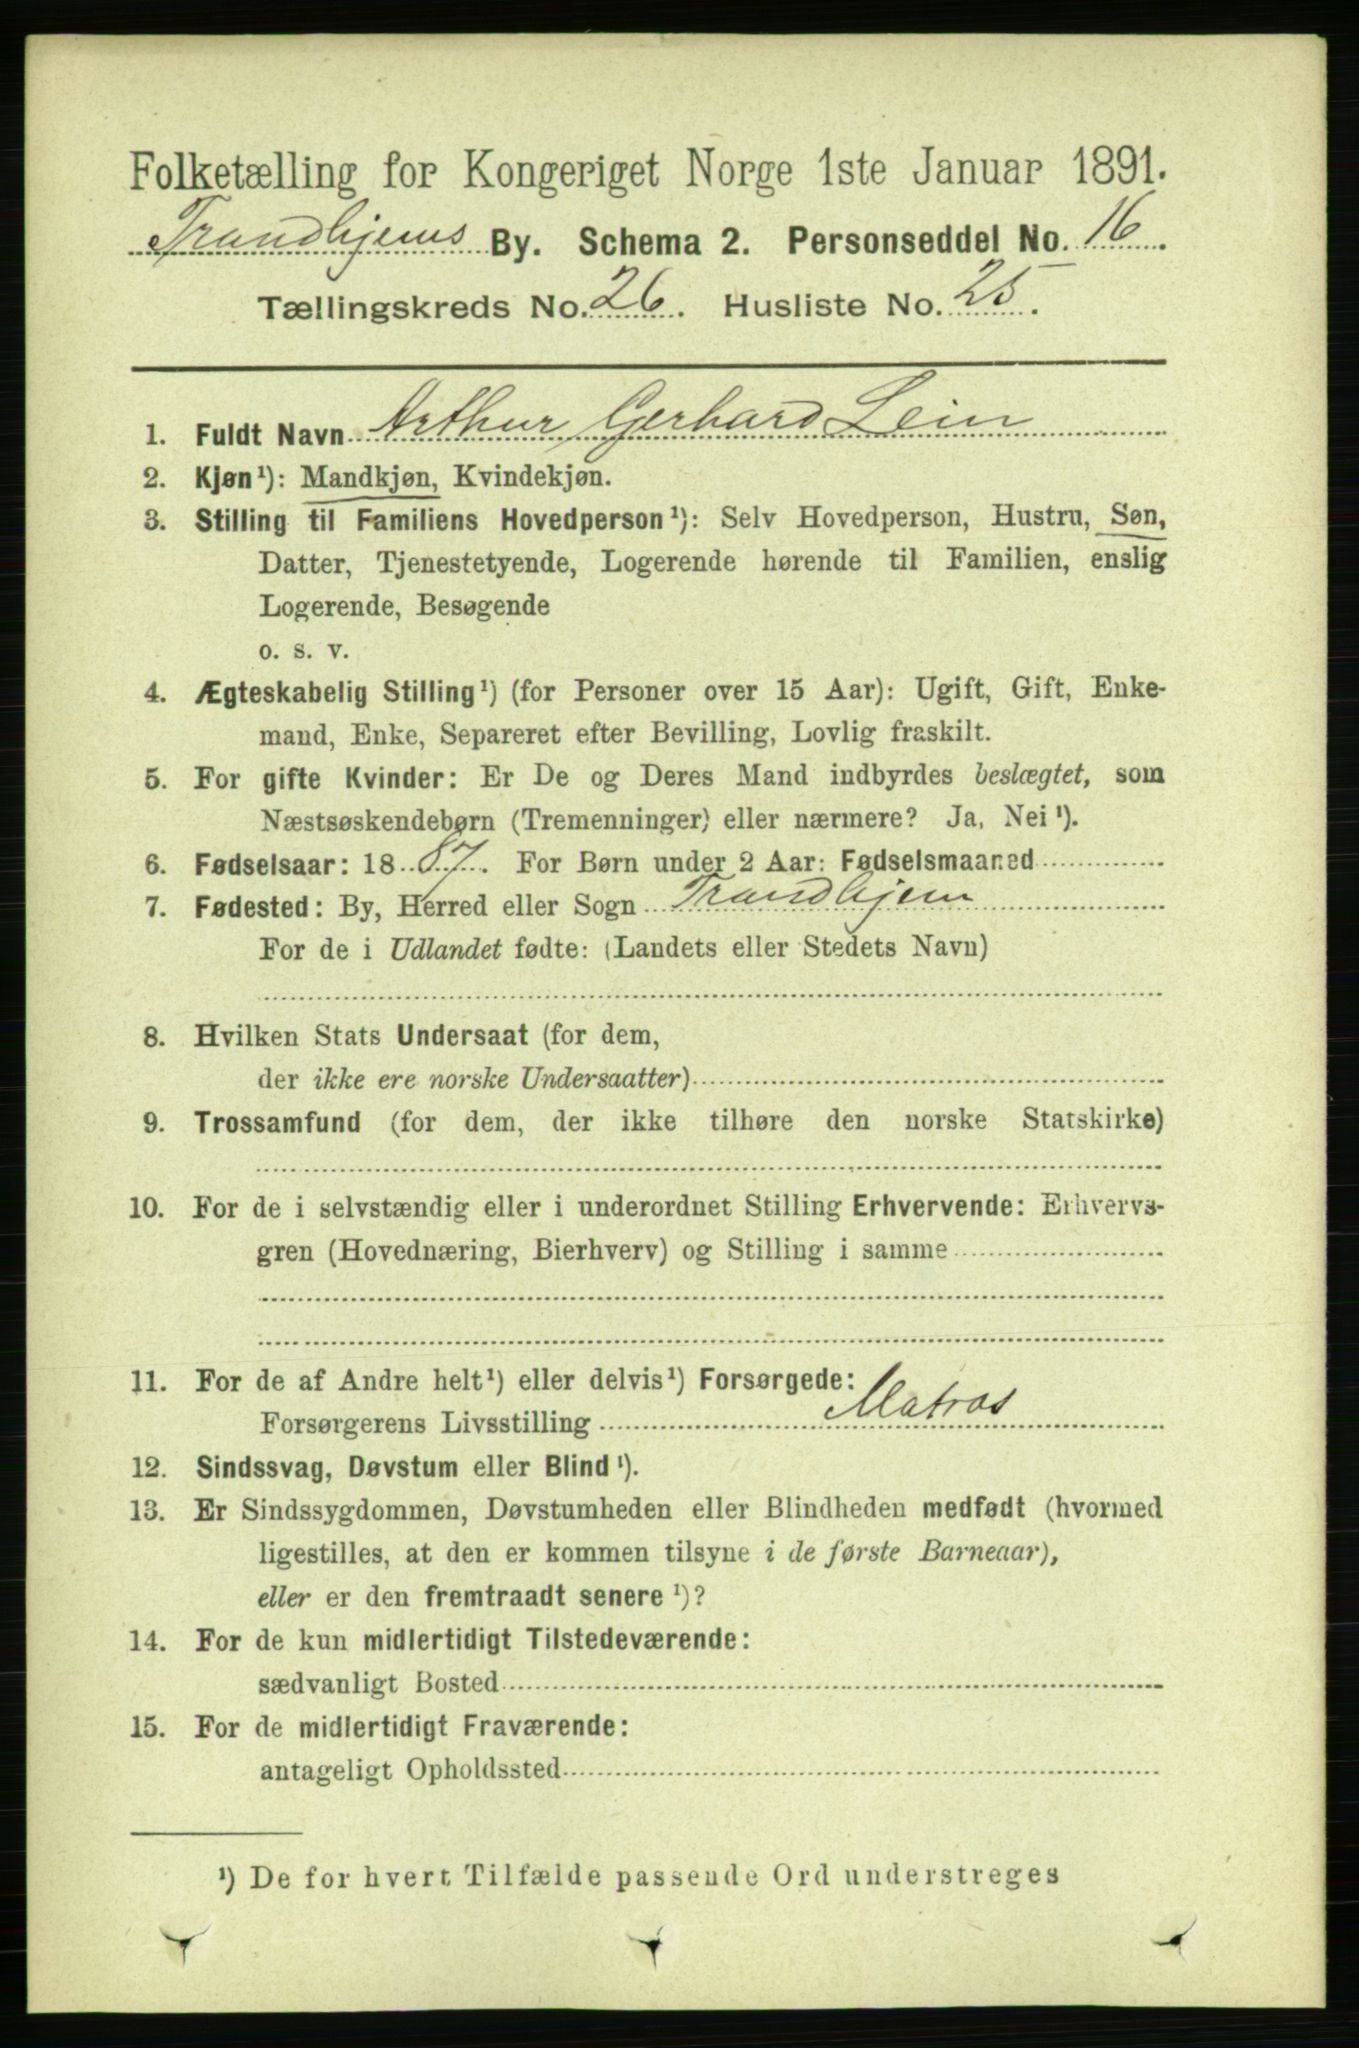 Folketælling for Kongeriget Norge 1ste Januar 1891.
Trondhjems By. Schema 2. Personseddel No. 16.
Tællingskreds No. 26. Husliste No. 25.
1. Fuldt Navn Arthur Gerhard Lein
2. Kjøn¹): Mandkjøn, Kvindekjøn.
3. Stilling til Familiens Hovedperson¹): Selv Hovedperson, Hustru, Søn,
Datter, Tjenestetyende, Logerende hørende til Familien, enslig
Logerende, Besøgende
o. s. v.
4. Ægteskabelig Stilling¹) (for Personer over 15 Aar): Ugift, Gift, Enke-
mand, Enke, Separeret efter Bevilling, Lovlig fraskilt.
5. For gifte Kvinder: Er De og Deres Mand indbyrdes beslægtet, som
Næstsøskendebørn (Tremenninger) eller nærmere? Ja, Nei¹).
6. Fødselsaar: 1887. For Børn under 2 Aar: Fødselsmaaned
7. Fødested: By, Herred eller Sogn Trondhjem
For de i Udlandet fødte: (Landets eller Stedets Navn)
8. Hvilken Stats Undersaat (for dem,
der ikke ere norske Undersaatter)
9. Trossamfund (for dem, der ikke tilhøre den norske Statskirke)
10. For de i selvstændig eller i underordnet Stilling Erhvervende: Erhvervs-
gren (Hovednæring, Bierhverv) og Stilling i samme
11. For de af Andre helt¹) eller delvis¹) Forsørgede:
Forsørgerens Livsstilling Matros
12. Sindssvag, Døvstum eller Blind¹).
13. Er Sindssygdommen, Døvstumheden eller Blindheden medfødt (hvormed
ligestilles, at den er kommen tilsyne i de første Barneaar),
eller er den fremtraadt senere¹)?
14. For de kun midlertidigt Tilstedeværende:
sædvanligt Bosted
15. For de midlertidigt Fraværende:
antageligt Opholdssted
¹) De for hvert Tilfælde passende Ord understreges